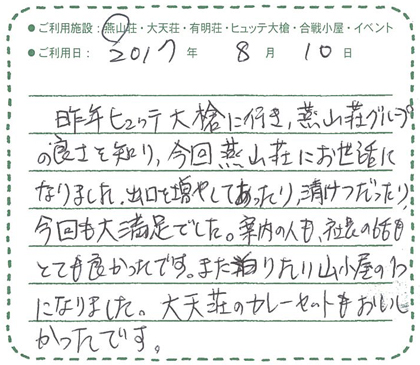 ●ご利用施設：燕山荘・大天荘・有明荘・ヒュッテ大槍・合戦小屋・イベント
●ご利用日： 2017 年 8 月 10 日
昨年ヒュッテ大槍に行き，燕山荘グループ
の良さを知り，今回燕山荘にお世話に
なりました。出口を増やしてあったり，清けつだったり，
今回も大満足でした。案内の人も、社長の話も
とても良かったです。また泊りたい山小屋の1つ
になりました。大天荘のカレーセットもおいし
かったです。